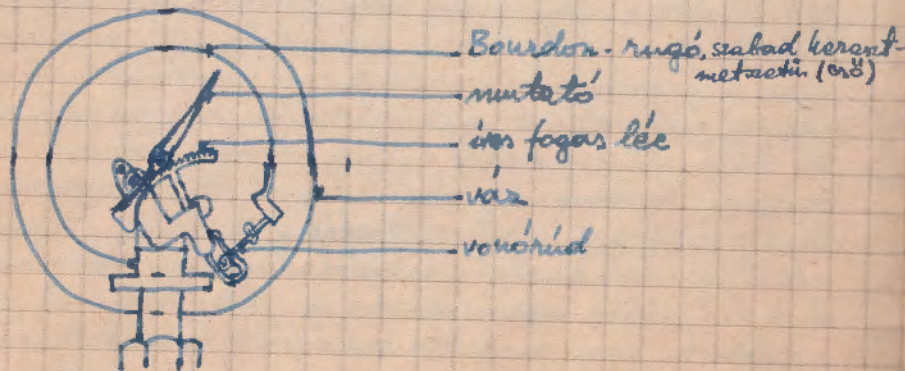 Bourdon-rugó, szabad kereszt-
metszetű (cső)
mutató
íves fogas léc
váz
vonórúd